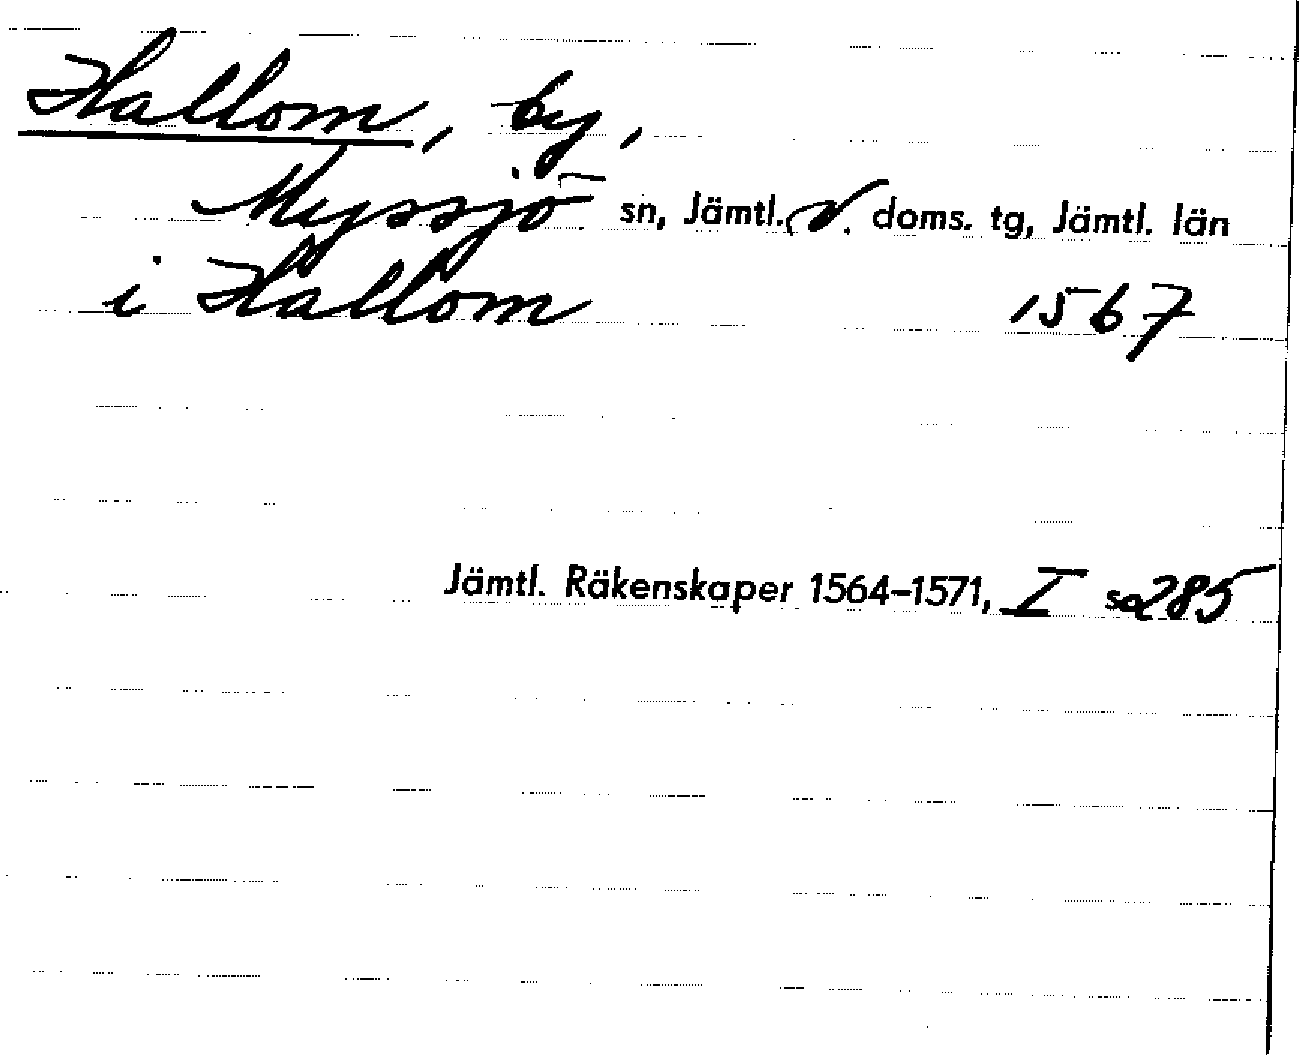 Hallom, by,
Myssjö sn, Jämtl. v. doms. tg, Jämtl. län
i Hallom 1567
Jämtl. Räkenskaper 1564–1571, I s. 285